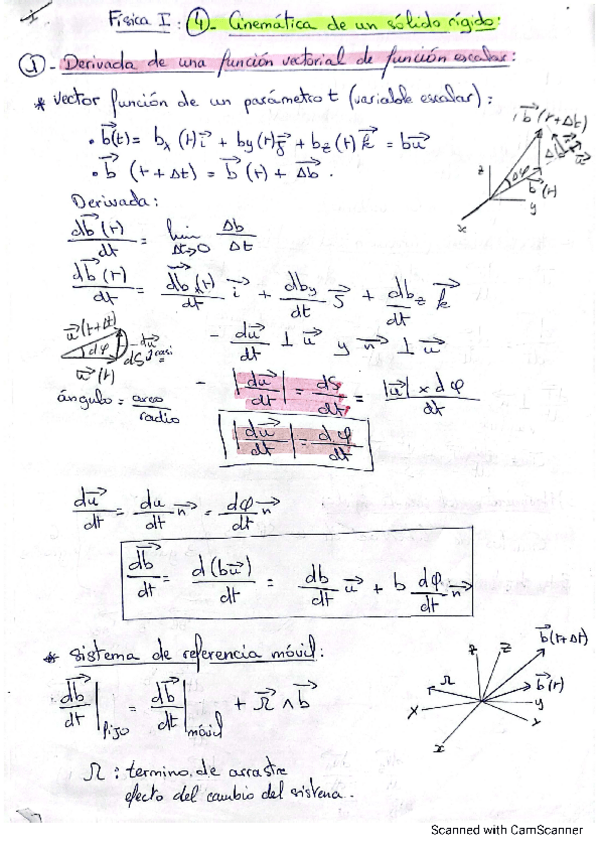 Física I : ④ - Cinemática de un sólido rígido:
① - Derivada de una función vectorial de función escalar:
* vector función de un parámetro t (variable escalar):
• b⃗(t) = bx (t) i⃗ + by (t) j⃗ + bz (t) k⃗ = b u⃗
• b⃗ (t + Δt) = b⃗ (t) + Δb⃗ .
b⃗ (t + Δt)
Δφ
b⃗ (t)
z
y
x
Derivada:
db⃗ (t)/dt = lim Δt→0 Δb/Δt
db⃗ (t)/dt = db⃗x (t)/dt i⃗ + dby/dt j⃗ + dbz/dt k⃗
u⃗ (t+Δt)
dφ
u⃗ (t)
- du⃗
dS } casi =
- du⃗/dt ⊥ u⃗ y n⃗ ⊥ u⃗
ángulo = arco/radio
- |du⃗/dt| = dS/dt = |u⃗| x dφ/dt
|du⃗/dt| = dφ/dt
du⃗/dt = du/dt n⃗ = dφ/dt n⃗
db⃗/dt = d(bu⃗)/dt = db/dt u⃗ + b dφ/dt n⃗
* sistema de referencia móvil:
db⃗/dt|fijo = db⃗/dt|móvil + Ω⃗ ∧ b⃗
b⃗(t+Δt)
b⃗(t)
Ω
z
z
x
y
y
x
Ω : termino de arrastre
efecto del cambio del sistema.
Scanned with CamScanner